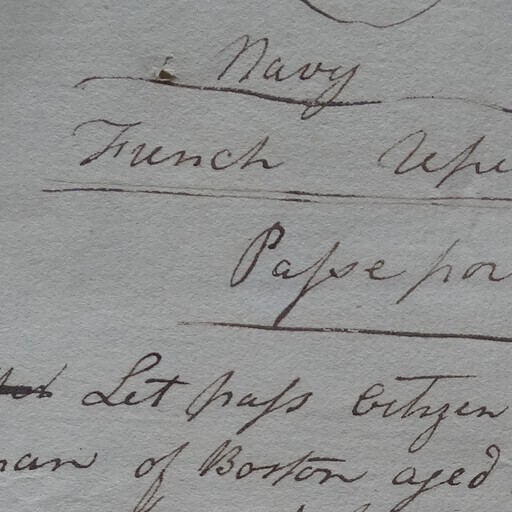 Navy
French Repu
Passe por
Let pass Citizen
man of Boston aged